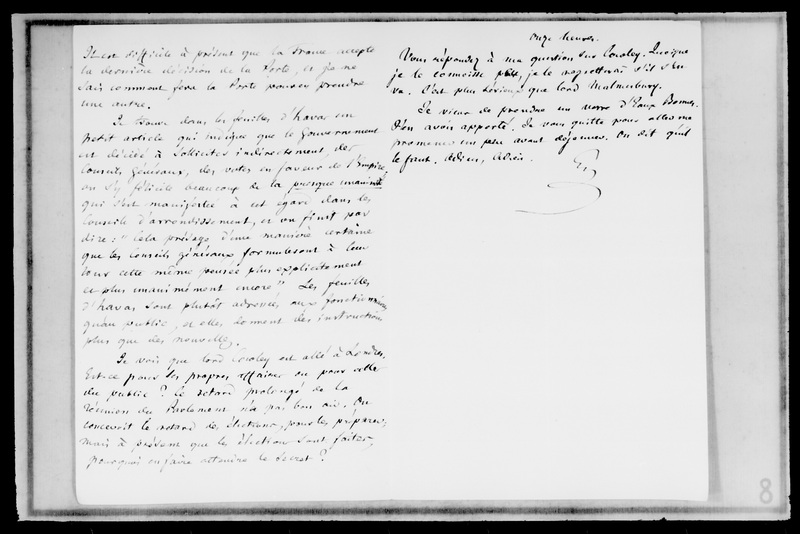 Il est difficile à présent que la France accepte
la dernière décision de la Porte, et je ne
sais comment fera la Porte pour en prendre
une autre.
Je trouve dans les feuilles d'havas un
petit article qui indique que le Gouvernement
est décidé à solliciter indirectement, des
Conseils Généraux, des votes en faveur de l'Empire.
On s'y félicite beaucoup de la presque unanimité
qui s'est manifestée à cet égard dans les
Conseils d'arrondissement, et on finit par
dire : "Cela présage d'une manière certaine
que les Conseils généraux formuleront à leur
tour cette même pensée plus explicitement
et plus unanimément encore" Les feuilles
d'havas sont plutôt adressées aux fonctionnaires
qu'au public, et elles donnent des instructions
plus que des nouvelles.
Je vois que lord Cowley est allé à Londres.
Est-ce pour ses propres affaires ou pour celles
du public ? Le retard prolongé de la
réunion du Parlement n'a pas bon air. On
concevoit le retard des élections, pour les préparer;
mais à présent que les élections sont faites,
pourquoi en faire attendre le secret ?
Onze heures.
Vous répondez à ma question sur Cowley. Quoique
je le connoisse peu, je le regretterai s'il s'en
va. C'est plus sérieux que lord Malmesbury.
Je viens de prendre un verre d'Eaux Bonnes.
J'en avois apporté. Je vous quitte pour aller me
promener un peu avant déjeuner. On dit qu'il
le faut. Adieu, Adieu.
G
8